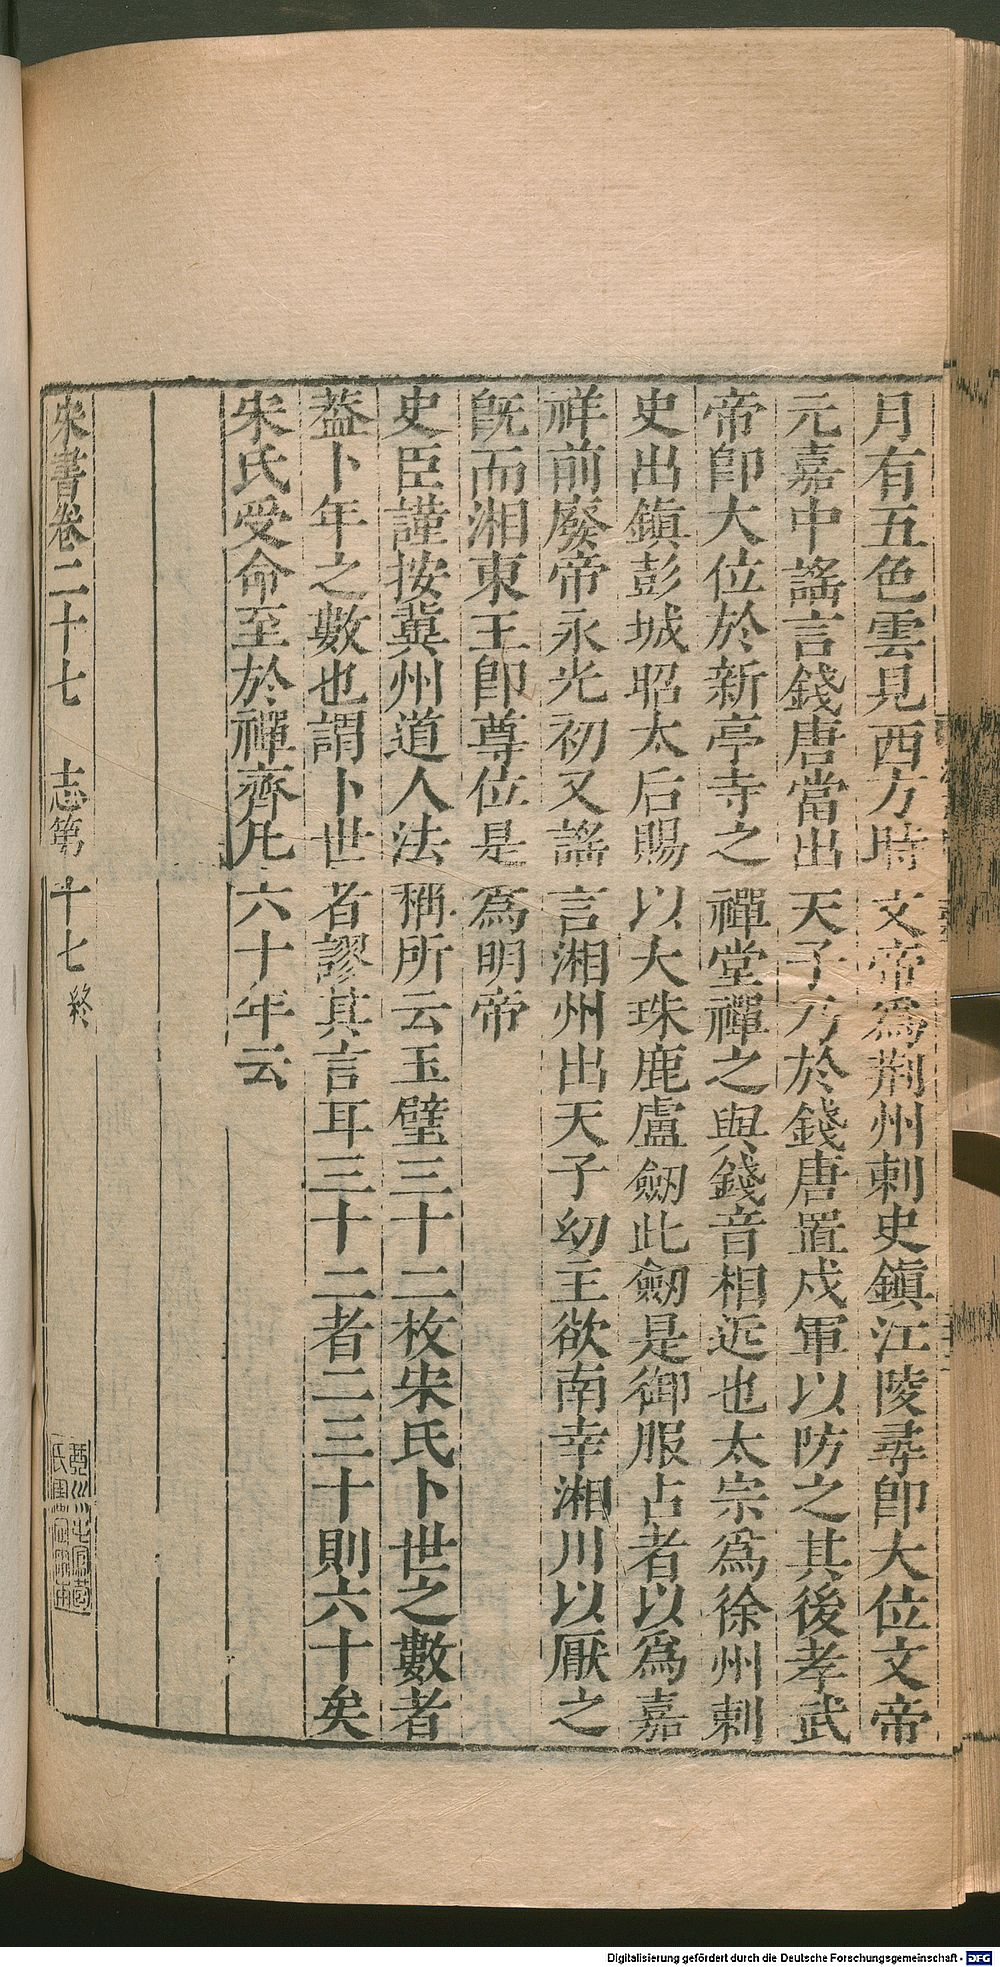 月有五色雲見西方時文帝爲荆州刺史鎭江陵尋卽大位文帝
元嘉中謠言錢唐當出天子乃於錢唐置戍軍以防之其後孝武
帝卽大位於新亭寺之禪堂禪之與錢音相近也太宗爲徐州刺
史出鎭彭城昭太后賜以大珠鹿盧劒此劒是御服占者以爲嘉
祥前廢帝永光初又謠言湘州出天子幼主欲南幸湘川以厭之
旣而湘東王卽尊位是爲明帝
史臣謹按冀州道人法稱所云玉璧三十二枚宋氏卜世之數者
蓋卜年之數也謂卜世者謬其言耳三十二者二三十則六十矣
宋氏受命至於禪齊凡六十年云
宋書卷二十七 志第十七 終
Digitalisierung gefördert durch die Deutsche Forschungsgemeinschaft - DFG